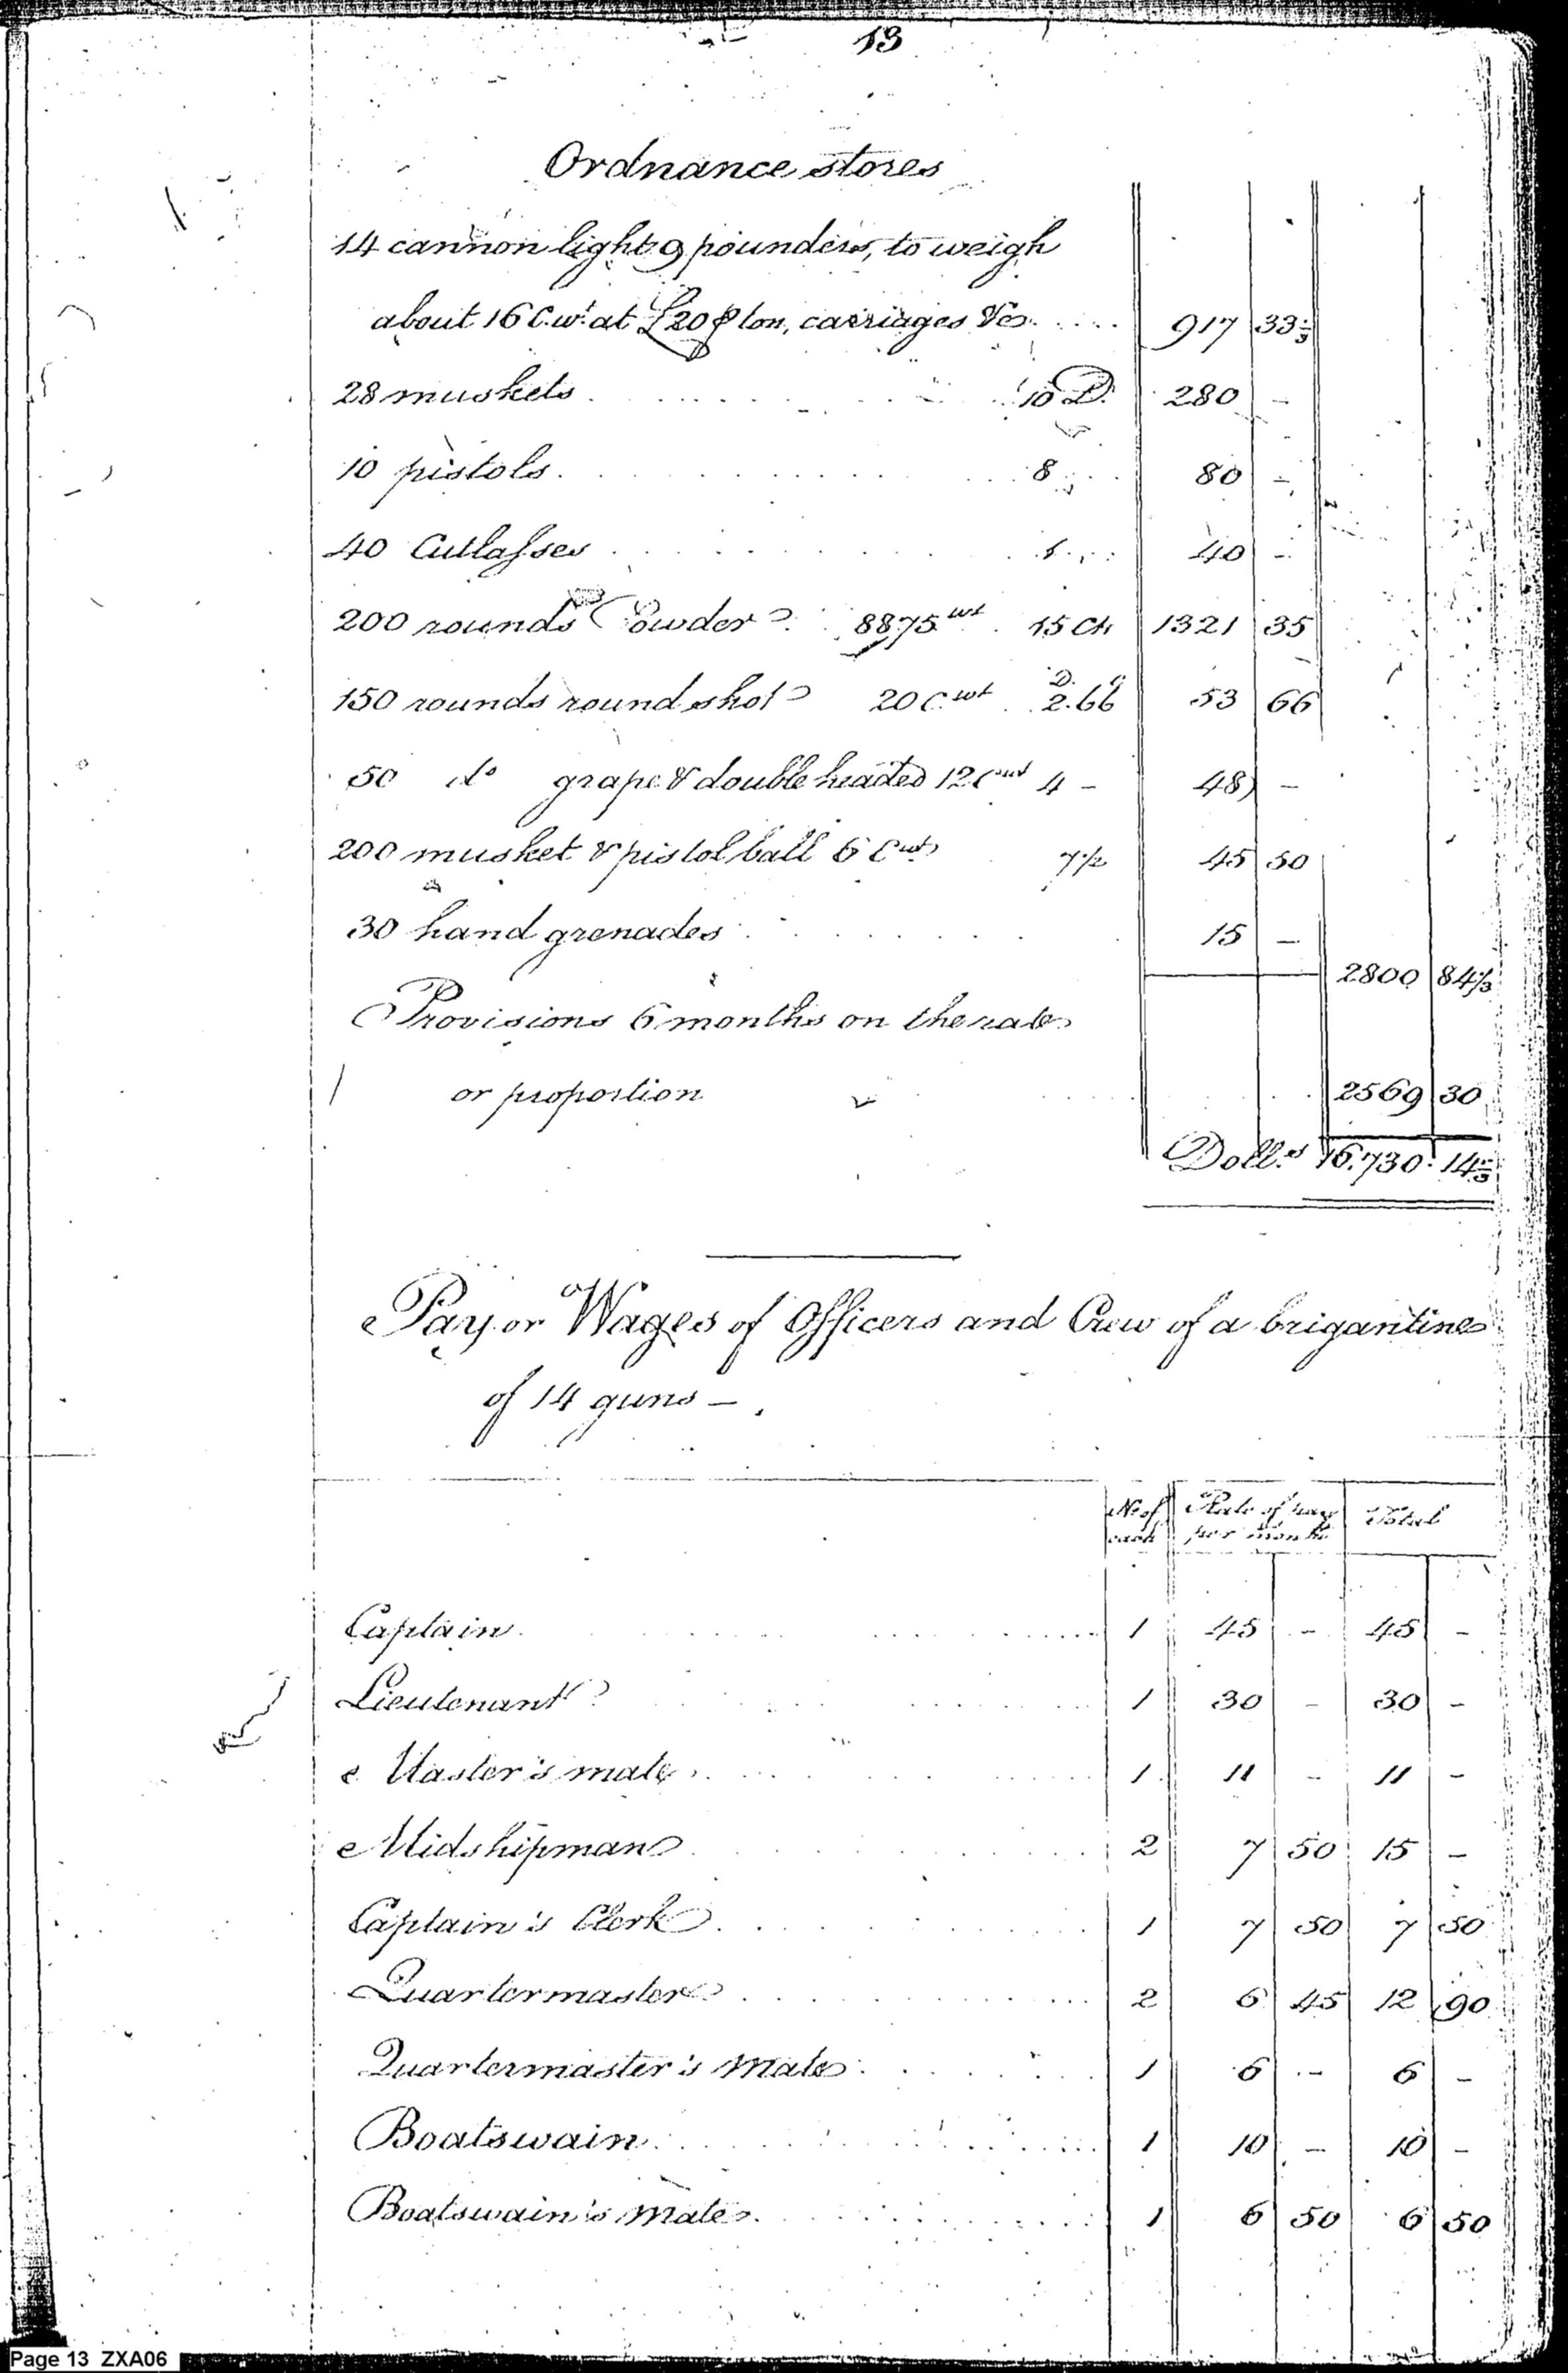 13
Ordnance stores
14 cannon light 9 pounders, to weigh
about 16 C.wt at £20 ⅌ ton, carriages &c. 917 33⅓
28 muskets 10 D. 280 –
10 pistols 8 80 –
40 Cutlasses 1 40 –
200 rounds Powder 8875 wt 15 Cts 1321 35
150 rounds round shot 20 C.wt D. C. 2.66 53 66
50 do grape & double headed 12 Cwt 4 – 48 –
200 musket & pistol ball 6 Cwt 7½ 45 50
30 hand grenades 15 –
2800 84⅓
Provisions 6 months on the rate
or proportion 2569 30
Dolls 16.730. 14⅓
Pay or Wages of Officers and Crew of a brigantine
of 14 guns –
No of each Rate of pay per month Total
Captain 1 45 – 45 –
Lieutenant 1 30 – 30 –
Master's mate 1 11 – 11 –
Midshipman 2 7 50 15 –
Captain's Clerk 1 7 50 7 50
Quartermaster 2 6 45 12 90
Quartermaster's Mate 1 6 – 6 –
Boatswain 1 10 – 10 –
Boatswain's Mate 1 6 50 6 50
Page 13 ZXA06